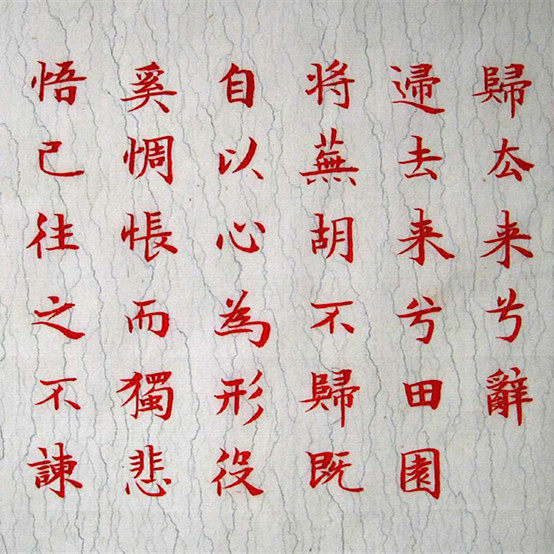 歸去来兮辭
歸去来兮田園
將蕪胡不歸既
自以心為形役
奚惆悵而獨悲
悟已往之不諫